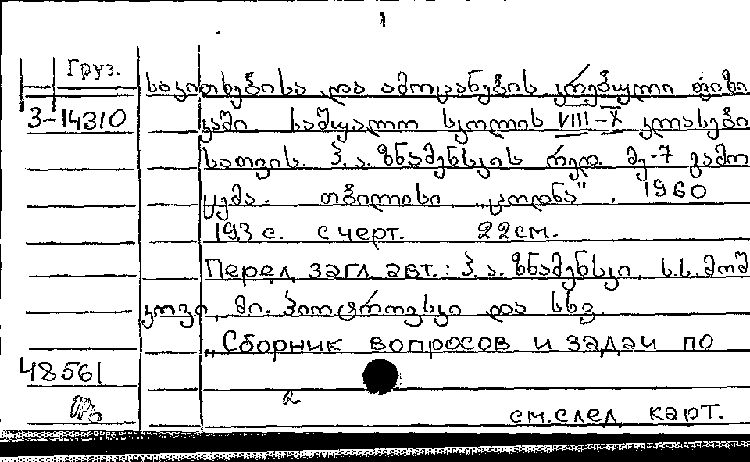 1
Груз.
საკითხებისა და ამოცანების კრებული ფიზი
3-14310
კაში საშუალო სკოლის VIII-X კლასები
სათვის. პ. ა. ზნამენსკის რედ. მე-7 გამო
ცემა. თბილისი „ცოდნა", 1960
193 с. с черт. 22см.
Перед загл. авт.: პ. ა. ზნამენსკი, ს. ს. მოშ
კოვი, მი. პიოტროვსკი და სხვ.
„Сборник вопросов и задач по
48561
см. след. карт.